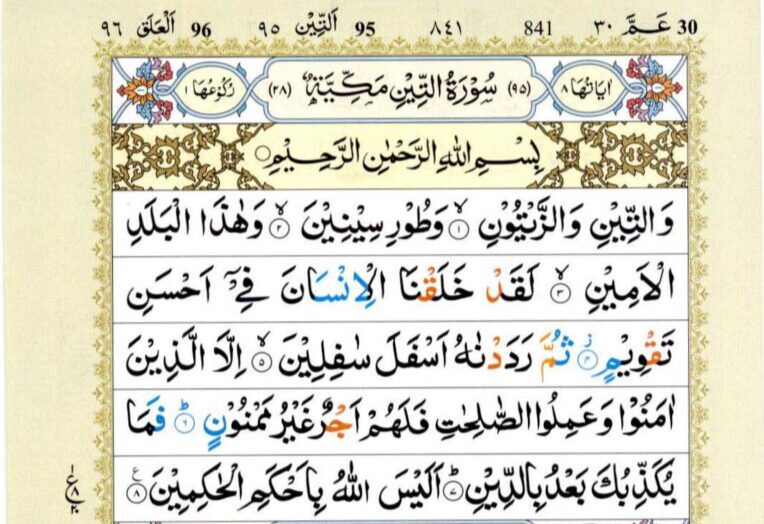 30 عَمَّ ٣٠ 841 ٨٤١ 95 اَلتِّيْن ٩٥ 96 اَلْعَلَق ٩٦
اٰيَاتُهَا ٨ (٩٥) سُوْرَةُ التِّيْنِ مَكِّيَّةٌ (٢٨) رُكُوْعُهَا ١
بِسْمِ اللّٰهِ الرَّحْمٰنِ الرَّحِيْمِ
وَالتِّيْنِ وَالزَّيْتُوْنِ ۙ﴿١﴾ وَطُوْرِ سِيْنِيْنَ ۙ﴿٢﴾ وَهٰذَا الْبَلَدِ
الْاَمِيْنِ ۙ﴿٣﴾ لَقَدْ خَلَقْنَا الْاِنْسَانَ فِيْۤ اَحْسَنِ
تَقْوِيْمٍ ۫﴿٤﴾ ثُمَّ رَدَدْنٰهُ اَسْفَلَ سٰفِلِيْنَ ۙ﴿٥﴾ اِلَّا الَّذِيْنَ
اٰمَنُوْا وَعَمِلُوا الصّٰلِحٰتِ فَلَهُمْ اَجْرٌ غَيْرُ مَمْنُوْنٍ ؕ﴿٦﴾ فَمَا
يُكَذِّبُكَ بَعْدُ بِالدِّيْنِ ؕ﴿٧﴾ اَلَيْسَ اللّٰهُ بِاَحْكَمِ الْحٰكِمِيْنَ ﴿٨﴾ ع